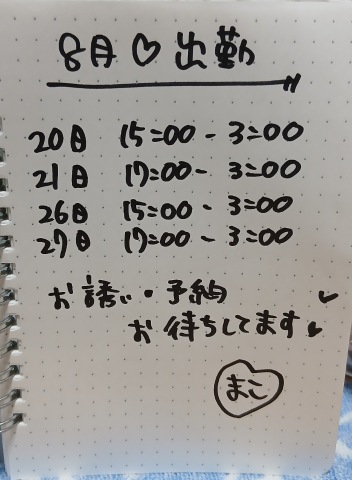 8月♡出勤
20日 15:00 - 3:00
21日 17:00 - 3:00
26日 15:00 - 3:00
27日 17:00 - 3:00
お誘い・予約
お待ちしてます♥
まこ